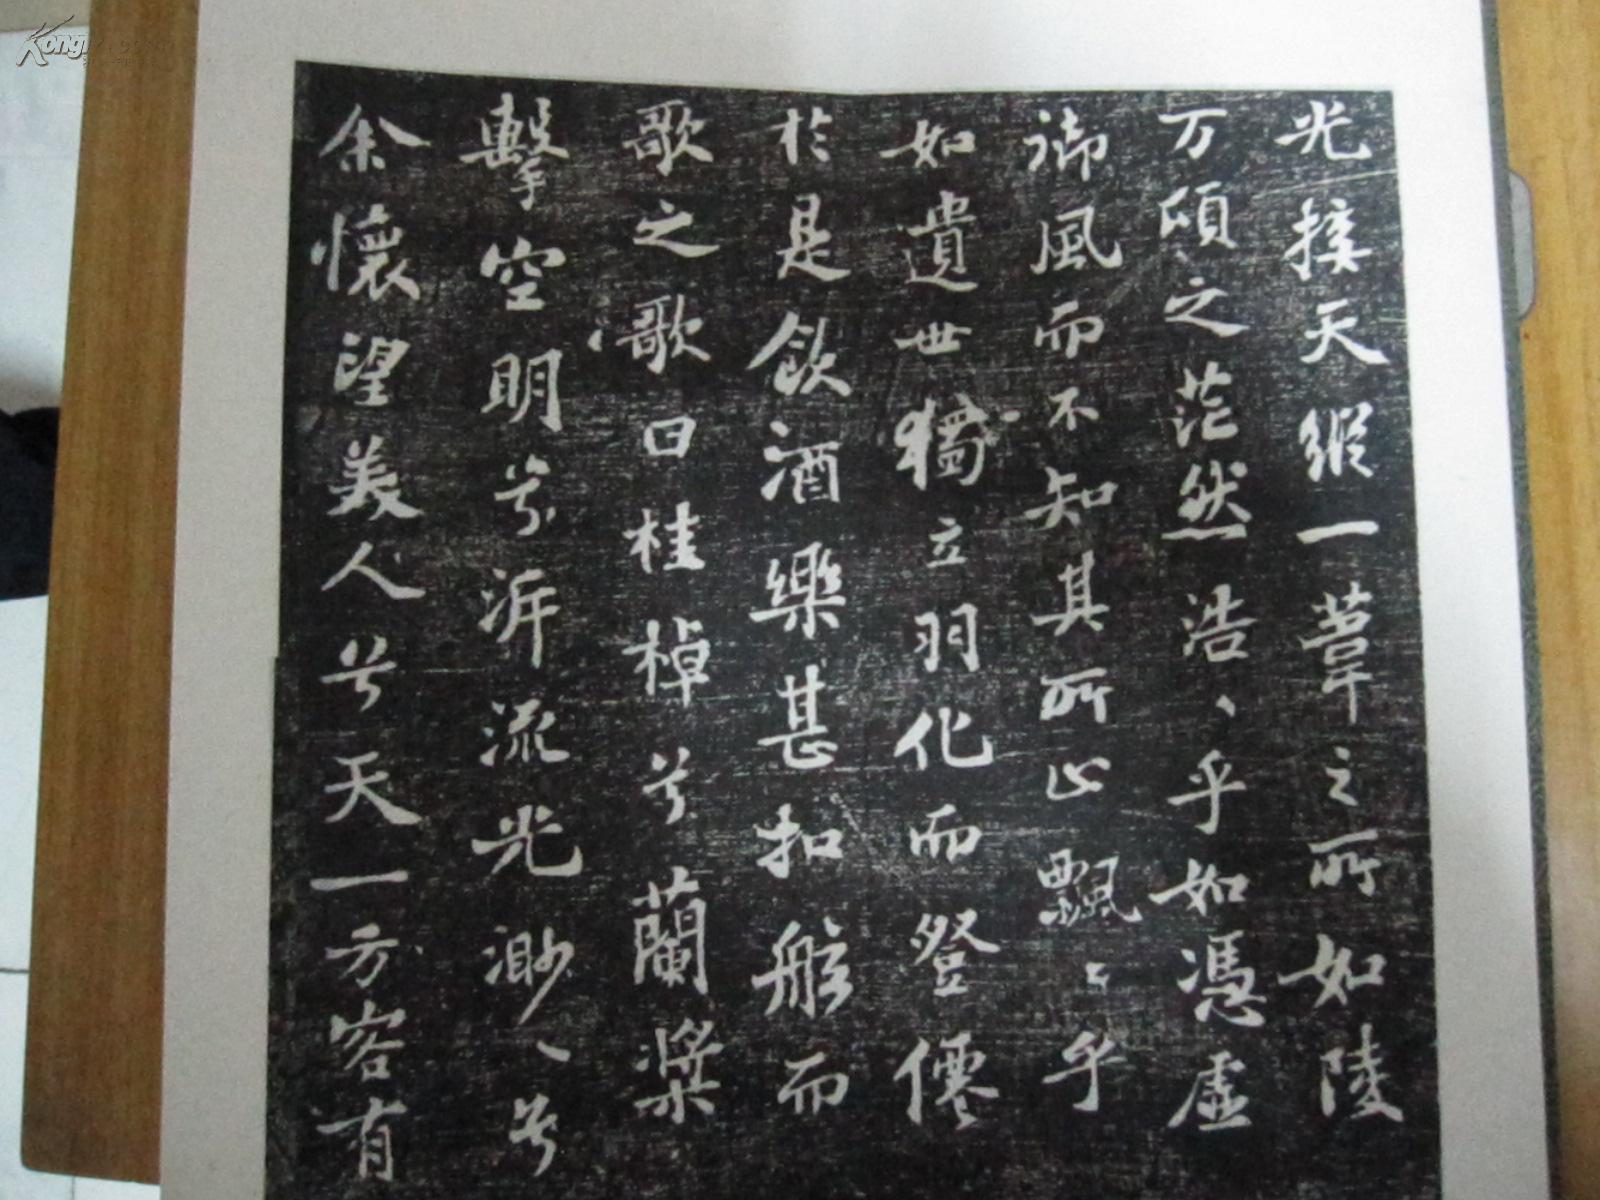 光接天縱一葦之所如陵
万頃之茫然浩〻乎如馮虛
御風而不知其所止飄〻乎
如遺世獨立羽化而登僊
於是飲酒樂甚扣舷而
歌之歌曰桂棹兮蘭槳
擊空明兮泝流光渺〻兮
余懷望美人兮天一方客有